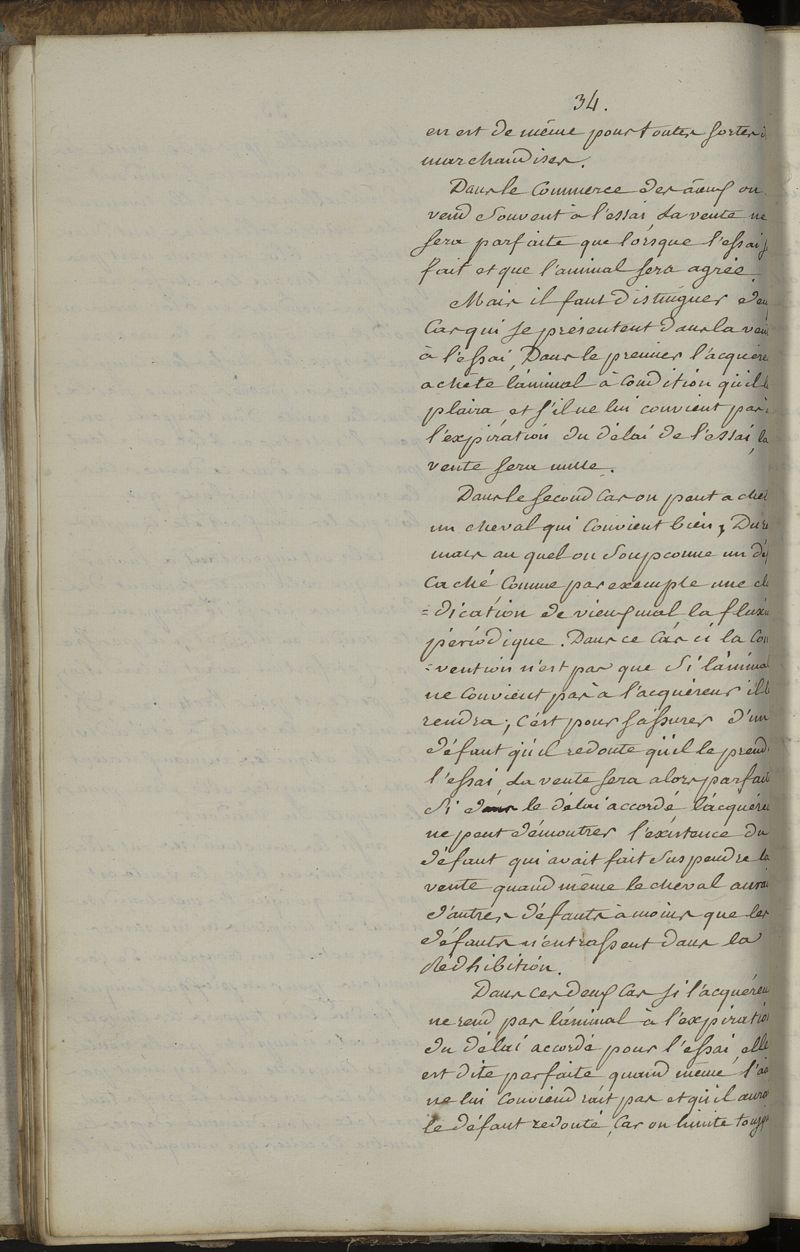 34.
en est de même pour toutes sortes d
marchandises.
Dans le Commerce des
vend souvent à l'essai, La vente ne
sera parfaite que lorsque l'essai s
fait et que l'animal sera agrée.
Mais il faut distinguer deu
Cas qui se présentent dans la ven
à l'essai, Dans le premier l'acquére
achète l'animal à Condition qu'il l
plaira et s'il ne lui convient pas à
l'expiration du délai de l'essai, la
vente sera nulle.
Dans le second Cas on peut a chet
un cheval qui Convient bien, Du re
mais au quel on soupconne un déf
Caché Comme par exemple une cl
=dication de vieux mal la fluxi
périodique. Dans ce Cas ci la Con
=vention n'est pas que si l'animal
ne Convient pas à l'acquéreur il l
rendra, c'est pour s'assurer d'un
défaut qu'il redoute qu'il le prend
l'essai, La vente sera alors parfait
si dans le délai accordé l'acquéreu
ne peut démontrer l'existence du
défaut qui avait fait suspendre la
vente quand même le cheval aurai
d'autres défauts à moins que les
défauts n'entrassent dans la
Rédhibition.
Dans ces deux Cas si l'acquéreu
ne rend pas l'animal à l'expiration
du délai accordé pour l'essai, elle
est dite parfaite quand même l'a
ne lui Conviendrait pas et qu'il aurai
le défaut redouté, Car on limite touj